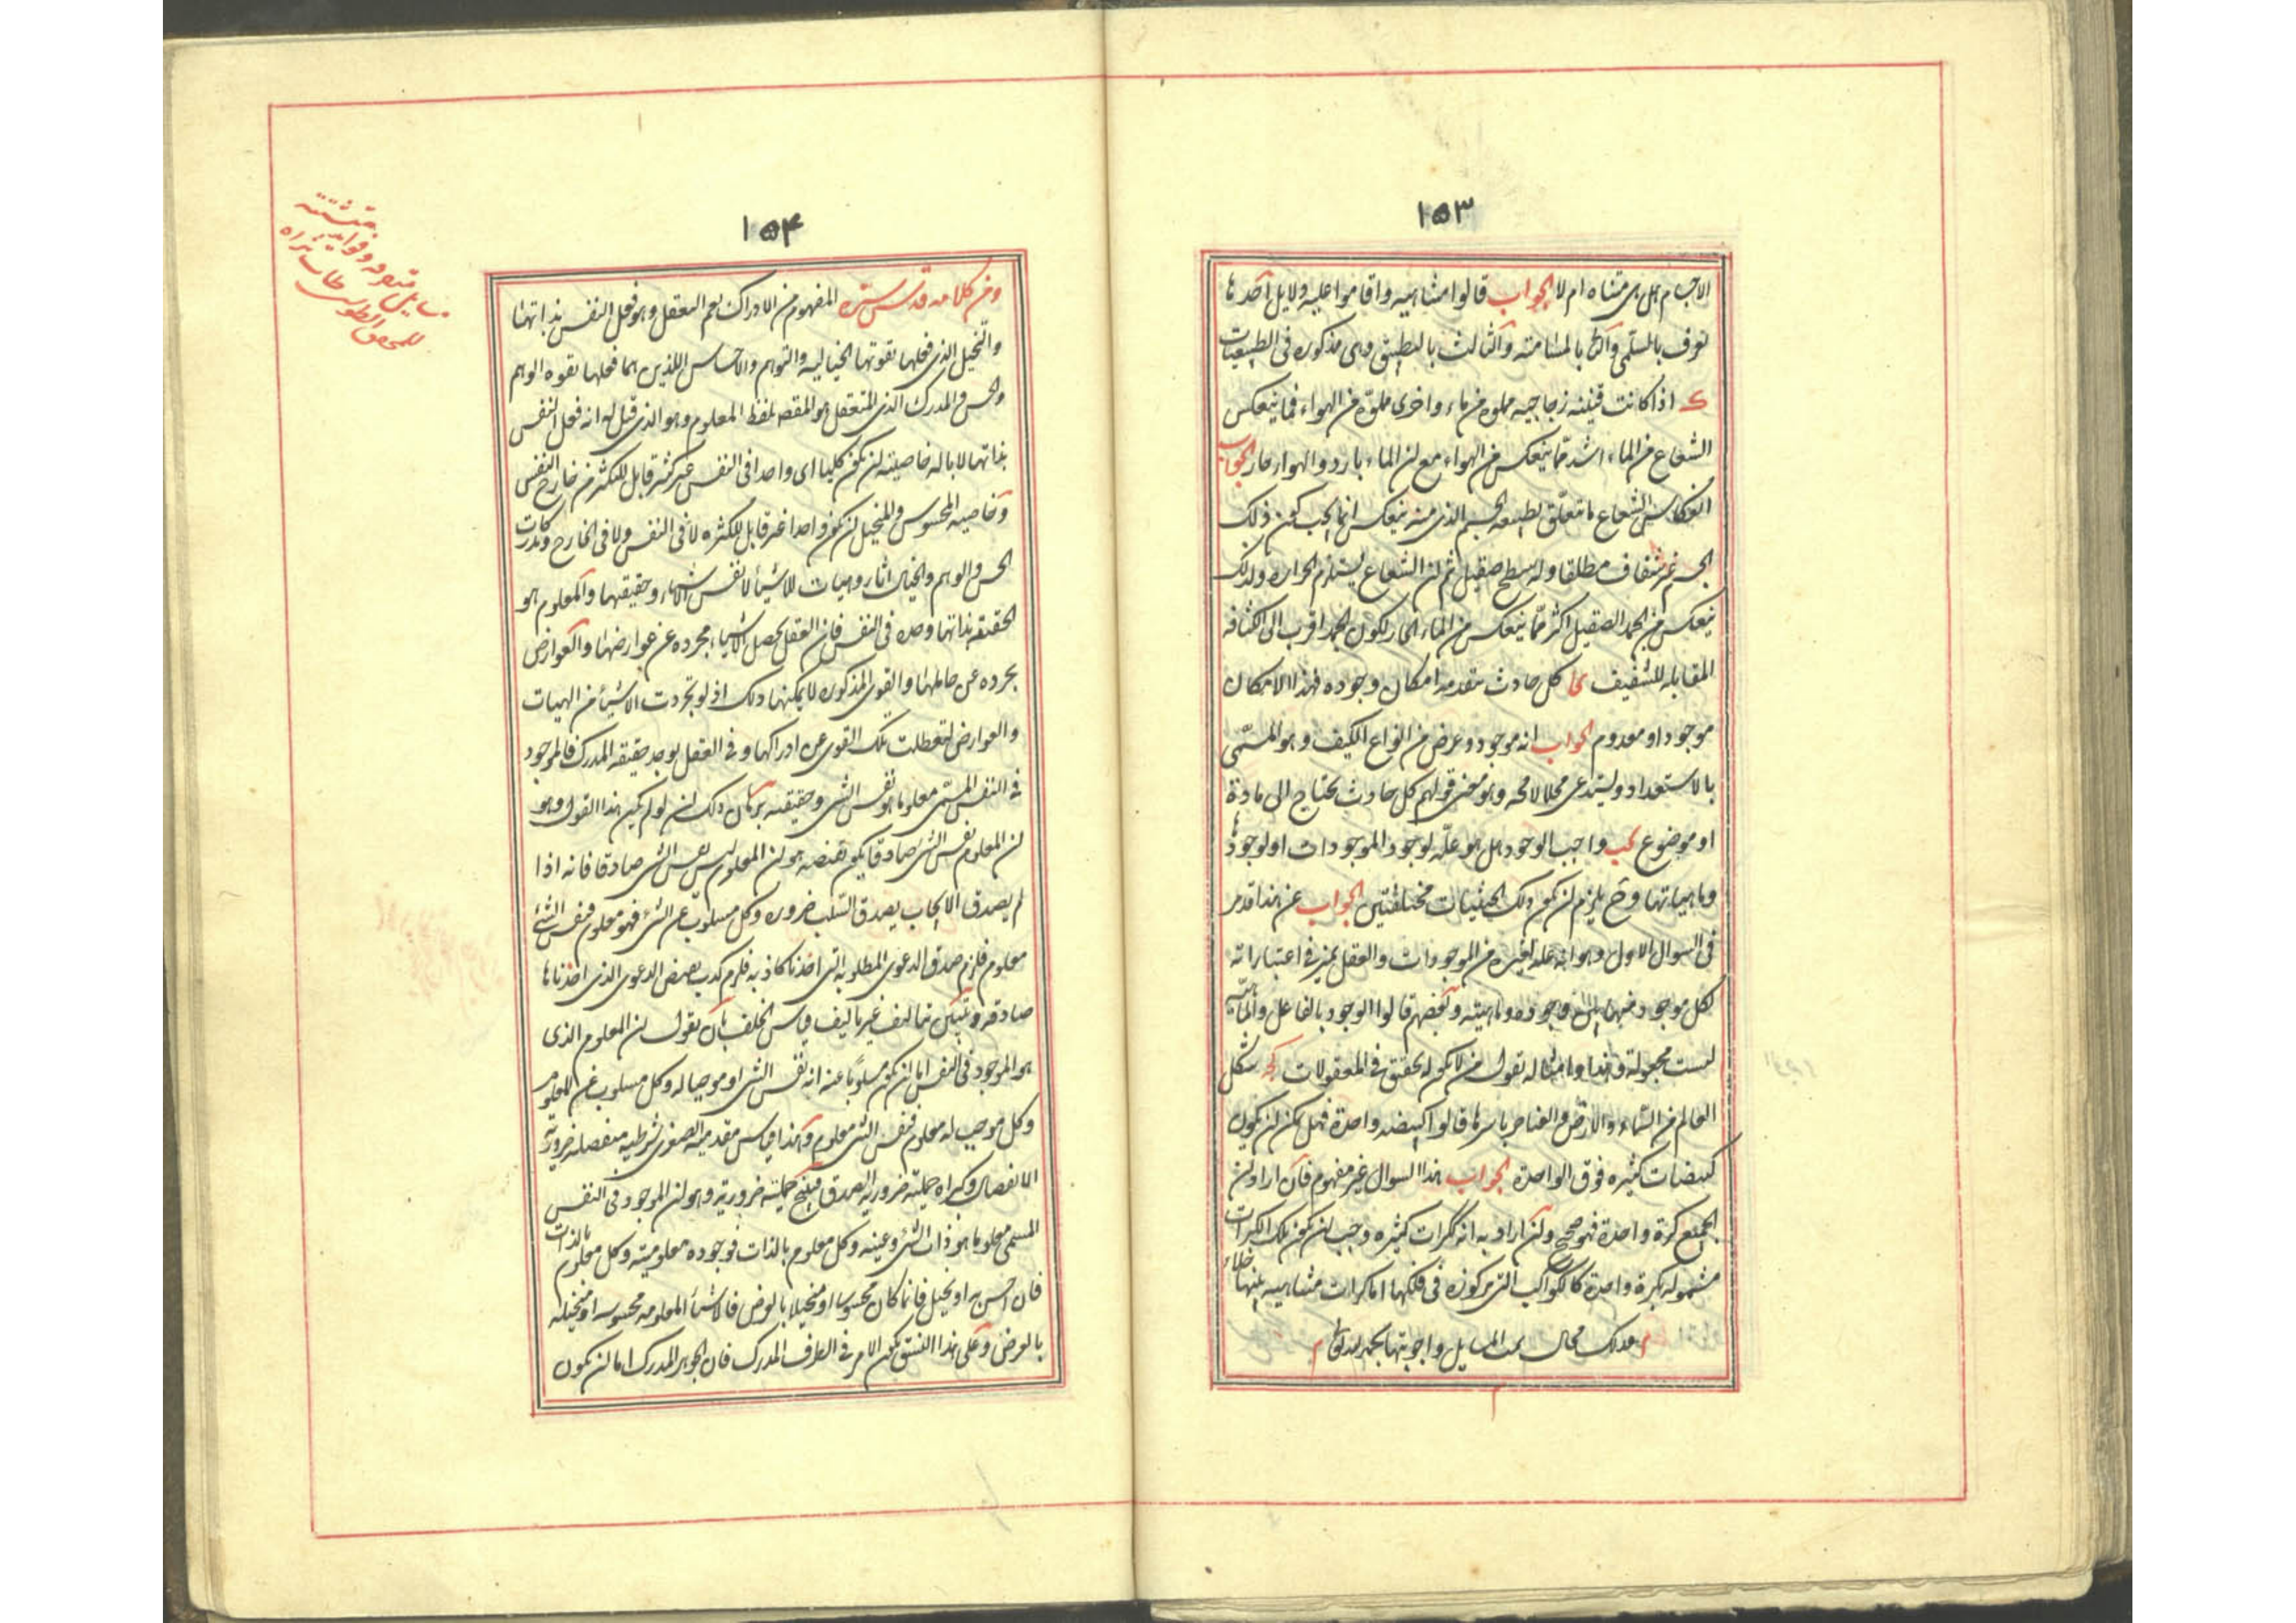 ١٥٣
الاجسام هل هي متناه ام لا الجواب قالوا متناهيه واقاموا عليه دلايل احدها
تعرف بالسلمي والثاني بالمسامته والثالث بالتطبيق وهي مذكوره في الطبيعيات
ك اذا كانت قنينه زجاجيه مملوه من ماء واخرى مملوه من الهواء فما ينعكس
الشعاع من الماء اشد مما ينعكس من الهواء مع ان الماء بارد والهوا حار الجواب
انعكاس الشعاع ما تتعلق بطبيعه الجسم الذي منه ينعكس انما يجب كون ذلك
الجسم غير شفاف مطلقا وله سطح صقيل ثم ان الشعاع يستلزم الحراره ولذلك
ينعكس من الجمد الصقيل اكثر مما ينعكس من الماء الحار لكون الجمد اقرب الى الكثافه
المقابله للشفيف كا كل حادث يتقدمه امكان وجوده فهذا الامكان
موجود او معدوم الجواب انه موجود وعرض من انواع الكيف وهو المسمى
بالاستعداد ويستدعى محلا لا محه وهو معنى قولهم كل حادث يحتاج الى مادة
او موضوع كب واجب الوجود هل هو علة لوجود الموجودات او لوجودها
وماهياتها وح يلزم ان يكون ذلك الحيثيات مختلفتين الجواب عن هذا قد مر
في السوال الاول وهو انه علة لغيره من الموجودات والعقل يميز في اعتباراته
لكل موجود منها بين وجوده وماهيته وبعضهم قالوا الوجود بالفاعل والماهيه
ليست مجعولة وهذا وامثاله تقول من لا يكون له تحقق في المعقولات كج شكل
العالم من السماء والارض والعناصر باسرها قالوا كبيضه واحدة فهل يمكن ان يكون
كبيضات كثيره فوق الواحدة الجواب هذا السوال غير مفهوم فان اراد ان
الجميع كرة واحدة فهو صحيح وان اراد به انه كرات كثيره وجب ان يكون تلك الكرات
مشموله بكرة واحدة كالكواكب المركوزه في فلكها اما كرات متناهيه بينها خلاء
فذلك محال تمت المسايل واجوبتها بحمد الله تعالى
١٥۴
ومن كلامه قدس سره المفهوم من الادراك يعم التعقل وهو فعل النفس بذاتها
والتخيل الذي فعلها بقوتها الخياليه والتوهم والاحساس اللذين هما فعلها بقوه الوهم
والحس والمدرك الذي للتعقل هو المقصه بلفظ المعلوم وهو الذي قيل له انه فعل النفس
بذاتها لا باله خاصيته ان يكون كليا اى واحدا في النفس غير كثير قابل للتكثر من خارج النفس
وخاصيه المحسوس والمتخيل ان يكون واحدا غير قابل للكثره لا في النفس ولا في الخارج ومدركات
الحس والوهم والخيال اثار وهيات للاشياء لا نفس الاشياء وحقيقتها والمعلوم هو
الحقيقه بذاتها وحده في النفس فان العقل يحصل الاشياء مجرده عن عوارضها والعوارض
مجرده عن حاملها والقوى المذكوره لا يمكنها ذلك اذ لو تجردت الاشياء من الهيات
والعوارض لتعطلت تلك القوى عن ادراكها وفي العقل يوجد حقيقه المدرك فالموجود
في النفس المسمى معلوما هو نفس الشى وحقيقته برهان ذلك ان لو لم يكن هذا القول وهو
ان المعلوم نفس الشى صادقا يكون نقيضه هو ان المعلوم ليس نفس الشى صادقا فانه اذا
لم يصدق الايجاب يصدق السلب ضروره وكل مسلوب عن الشى فهو معلوم فنفس الشى
معلوم فلزم صدق الدعوى المطلوبه التي اخذنا كاذبه فلزم كذب نقيض الدعوى الذي اخذناها
صادقه ويتبين بتاليف غير تاليف قياس الخلف بان يقول ان المعلوم الذي
هو الموجود في النفس اما ان يكون مسلوبا عنه انه نفس الشى او موجبا له وكل مسلوب عن المعلوم
وكل موجب له معلوم فنفس الشى معلوم وهذا قياس مقدمته الصغرى شرطيه منفصله ضروريه
الانفصال وكبراه حمليته ضروريه الصدق فينتج حمليته ضروريه وهو ان الموجود في النفس
المسمى معلوما هو ذات الشى وعينه وكل معلوم بالذات فوجوده معلوميته وكل معلوم بالذات
فان احس به او تخيل فانما كان محسوسا او متخيلا بالعرض فالاشياء المعلومه محسوسه او متخيله
بالعرض وعلى هذا النسق يكون الامر في الطرف المدرك فان الجوهر المدرك اما ان يكون
متفرقه وفوايد
للمحقق الطوسي